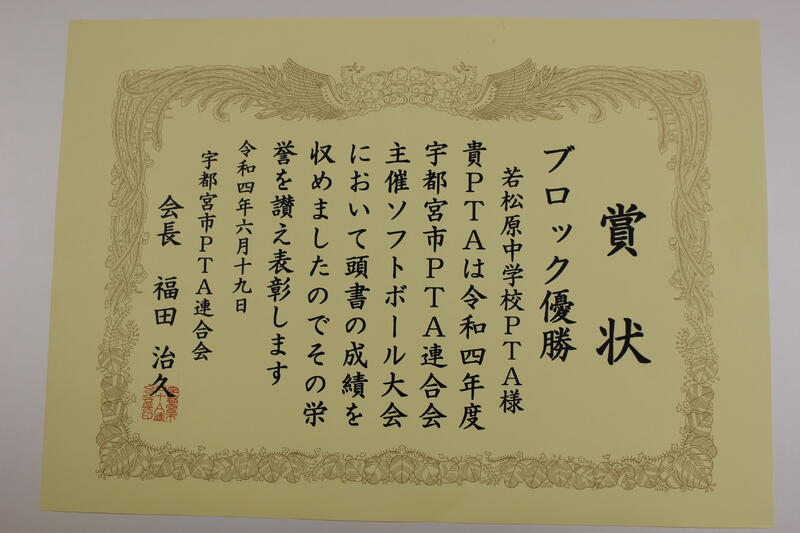 賞状
ブロック優勝
若松原中学校PTA様
貴PTAは令和四年度
宇都宮市PTA連合会
主催ソフトボール大会
において頭書の成績を
収めましたのでその栄
誉を讃え表彰します
令和四年六月十九日
宇都宮市PTA連合会
会長 福田 治久